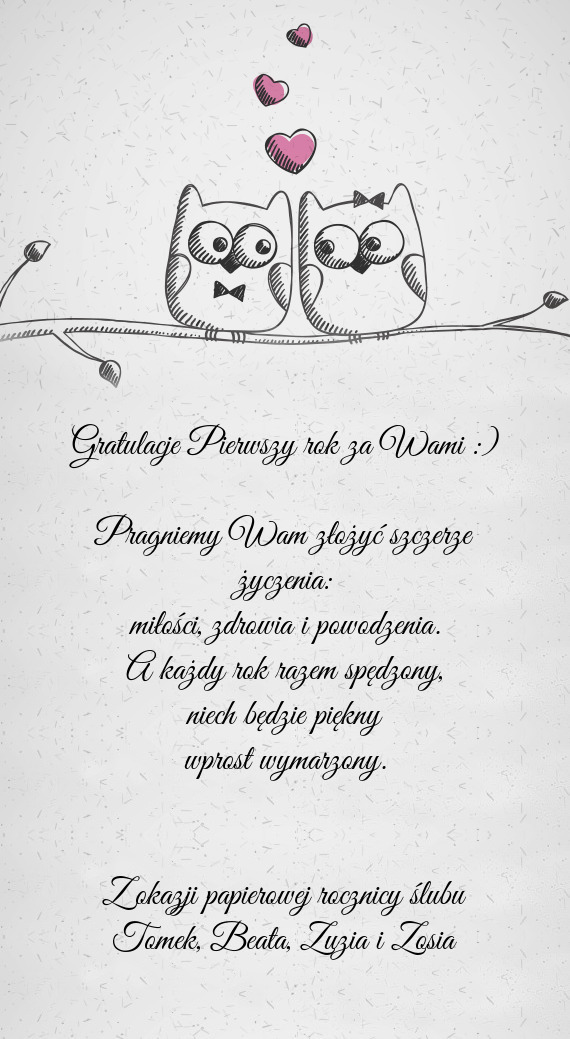 Gratulacje Pierwszy rok za Wami :)
Pragniemy Wam złożyć szczerze
życzenia:
miłości, zdrowia i powodzenia.
A każdy rok razem spędzony,
niech będzie piękny
wprost wymarzony.
Zokazji papierowej rocznicy ślubu
Tomek, Beata, Zuzia i Zosia